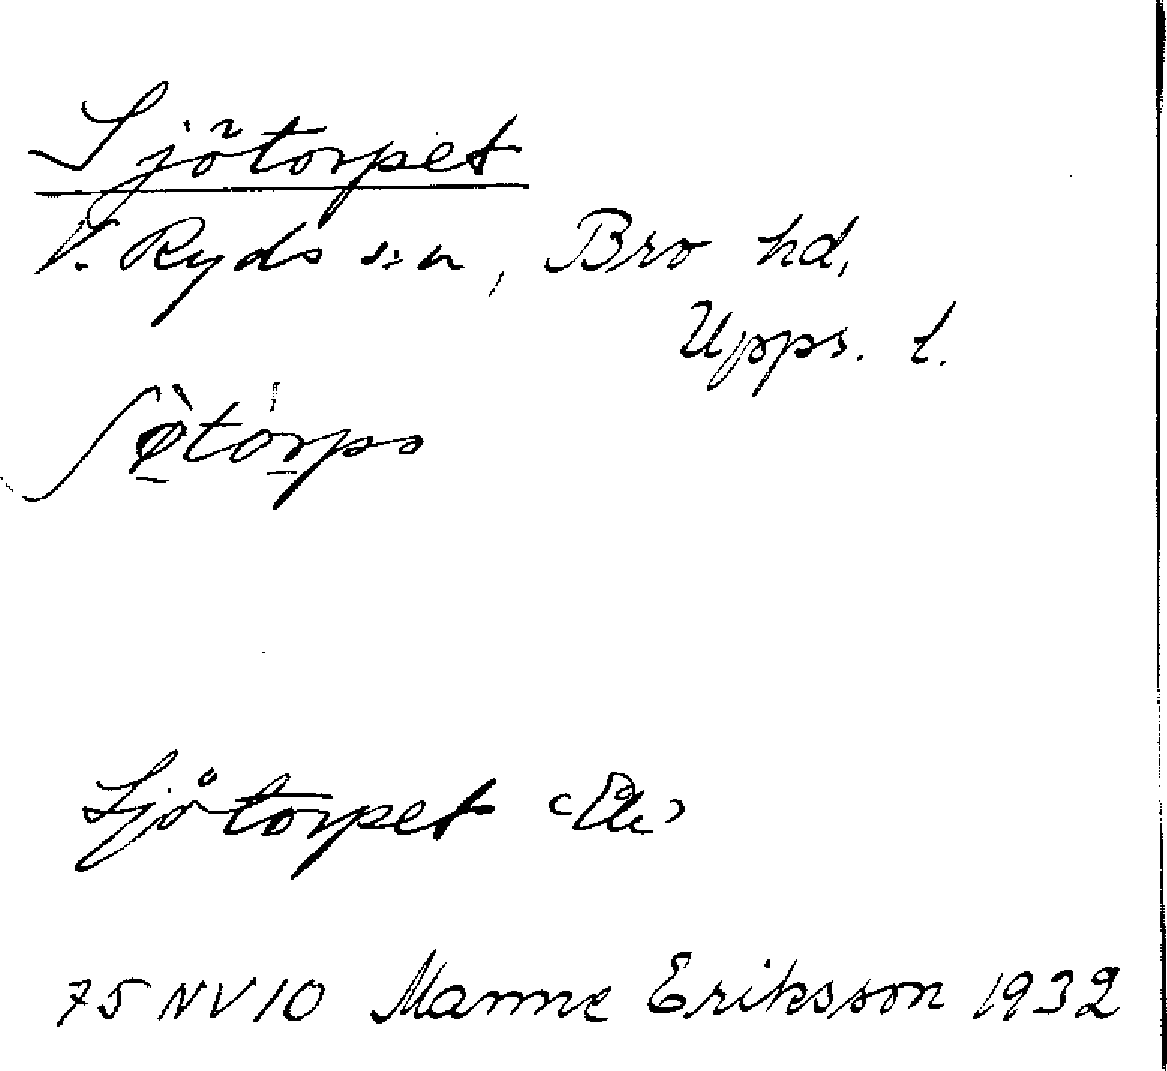 Sjötorpet
V. Ryds s:n, Bro hd,
Upps. l.
ʃø̀tórpə
Sjötorpet (Ek)
75 NV 10 Manne Eriksson 1932